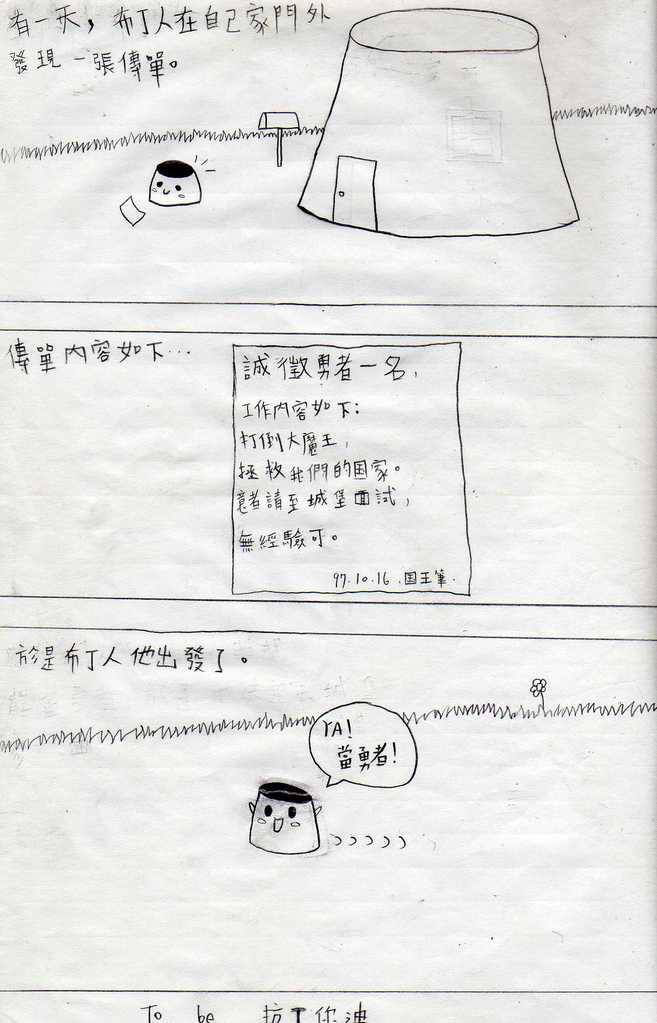 有一天，布丁人在自己家門外
發現一張傳單。
傳單內容如下…
誠徵勇者一名，
工作內容如下：
打倒大魔王，
拯救我們的国家。
意者請至城堡面試，
無經驗可。
97.10.16.国王筆.
於是布丁人他出發了。
YA!
當勇者!
To be